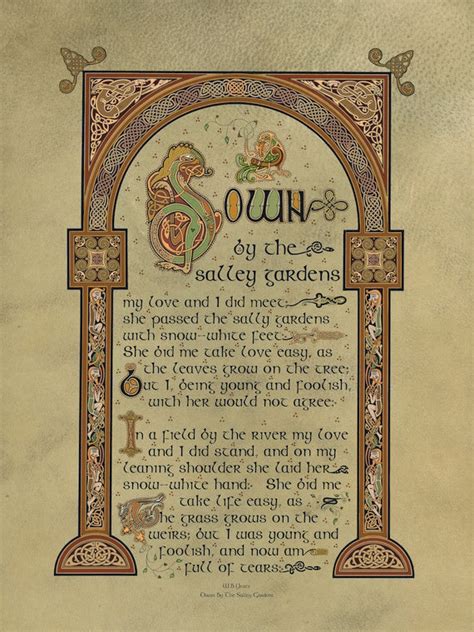 DOWN
by the
salley gardens
my love and I did meet;
she passed the sally gardens
with snow-white feet.
She bid me take love easy, as
the leaves grow on the tree;
But I, being young and foolish,
with her would not agree.
In a field by the river my love
and I did stand, and on my
leaning shoulder she laid her
snow-white hand. She bid me
take life easy, as
the grass grows on the
weirs; but I was young and
foolish, and now am
full of tears.
W.B. Yeats
Down By The Salley Gardens